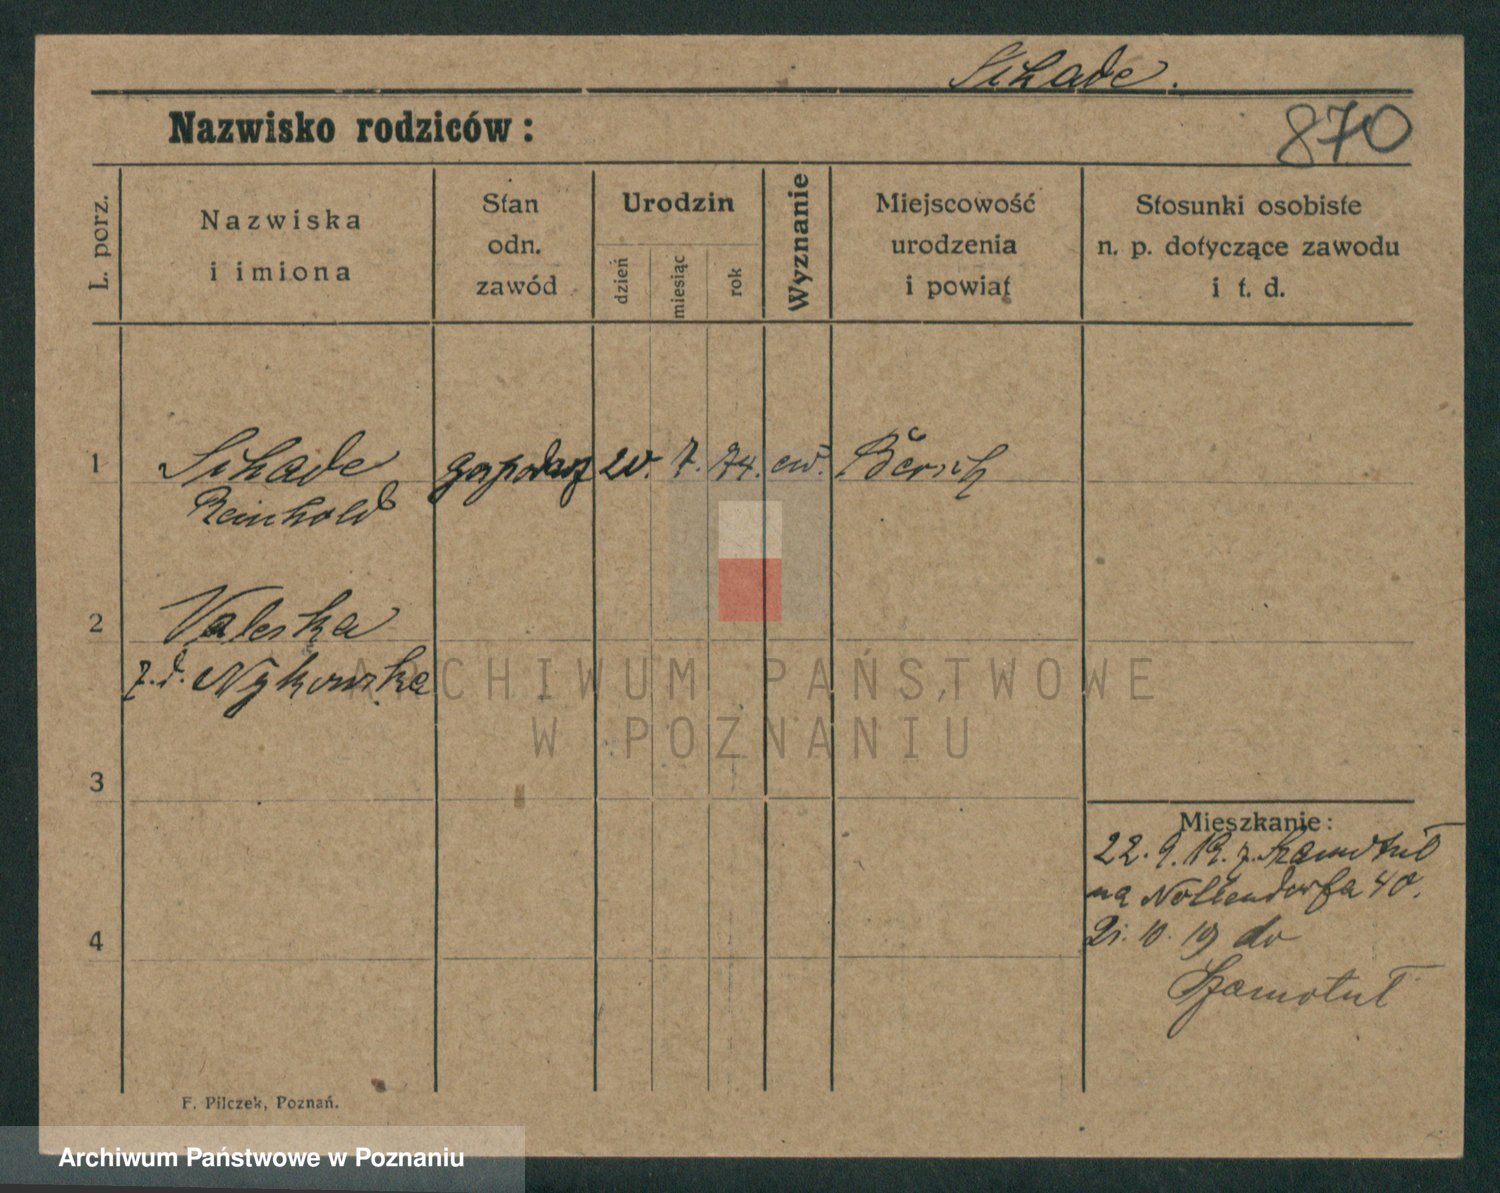 Schade.
Nazwisko rodziców:
870
L. porz.
Nazwiska
i imiona
Stan
odn.
zawód
Urodzin
dzień
miesiąc
rok
Wyznanie
Miejscowość
urodzenia
i powiat
Stosunki osobiste
n. p. dotyczące zawodu
i t. d.
1
Schade
Reinhold
gospodarz
20. 7. 74. ew.
2
Valeska
z.d. Nykowska
ARCHIWUM PAŃSTWOWE
W POZNANIU
3
Mieszkanie:
22. 9. 19. z. Szamotuł
na Nollendorfa 40.
4
21. 10. 19 do
Szamotuł
F. Pilczek, Poznań.
Archiwum Państwowe w Poznaniu